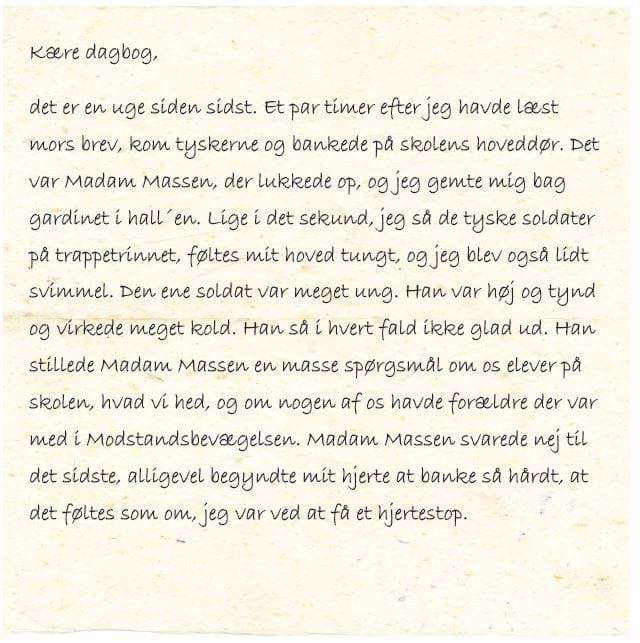 Kære dagbog,
det er en uge siden sidst. Et par timer efter jeg havde læst
mors brev, kom tyskerne og bankede på skolens hoveddør. Det
var Madam Massen, der lukkede op, og jeg gemte mig bag
gardinet i hall´en. Lige i det sekund, jeg så de tyske soldater
på trappetrinnet, føltes mit hoved tungt, og jeg blev også lidt
svimmel. Den ene soldat var meget ung. Han var høj og tynd
og virkede meget kold. Han så i hvert fald ikke glad ud. Han
stillede Madam Massen en masse spørgsmål om os elever på
skolen, hvad vi hed, og om nogen af os havde forældre der var
med i Modstandsbevægelsen. Madam Massen svarede nej til
det sidste, alligevel begyndte mit hjerte at banke så hårdt, at
det føltes som om, jeg var ved at få et hjertestop.